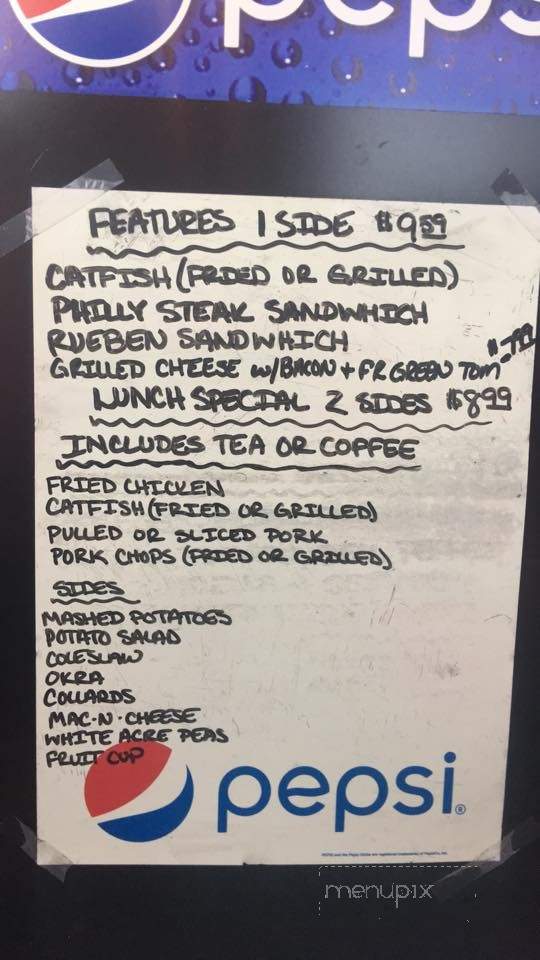 pepsi
FEATURES 1 SIDE $9.59
CATFISH (FRIED OR GRILLED)
PHILLY STEAK SANDWHICH
RUEBEN SANDWHICH
GRILLED CHEESE w/BACON + FR GREEN TOM - 7.99
LUNCH SPECIAL 2 SIDES $8.99
INCLUDES TEA OR COFFEE
FRIED CHICKEN
CATFISH (FRIED OR GRILLED)
PULLED OR SLICED PORK
PORK CHOPS (FRIED OR GRILLED)
SIDES
MASHED POTATOES
POTATO SALAD
COLESLAW
OKRA
COLLARDS
MAC-N-CHEESE
WHITE ACRE PEAS
FRUIT CUP
pepsi®
menupix